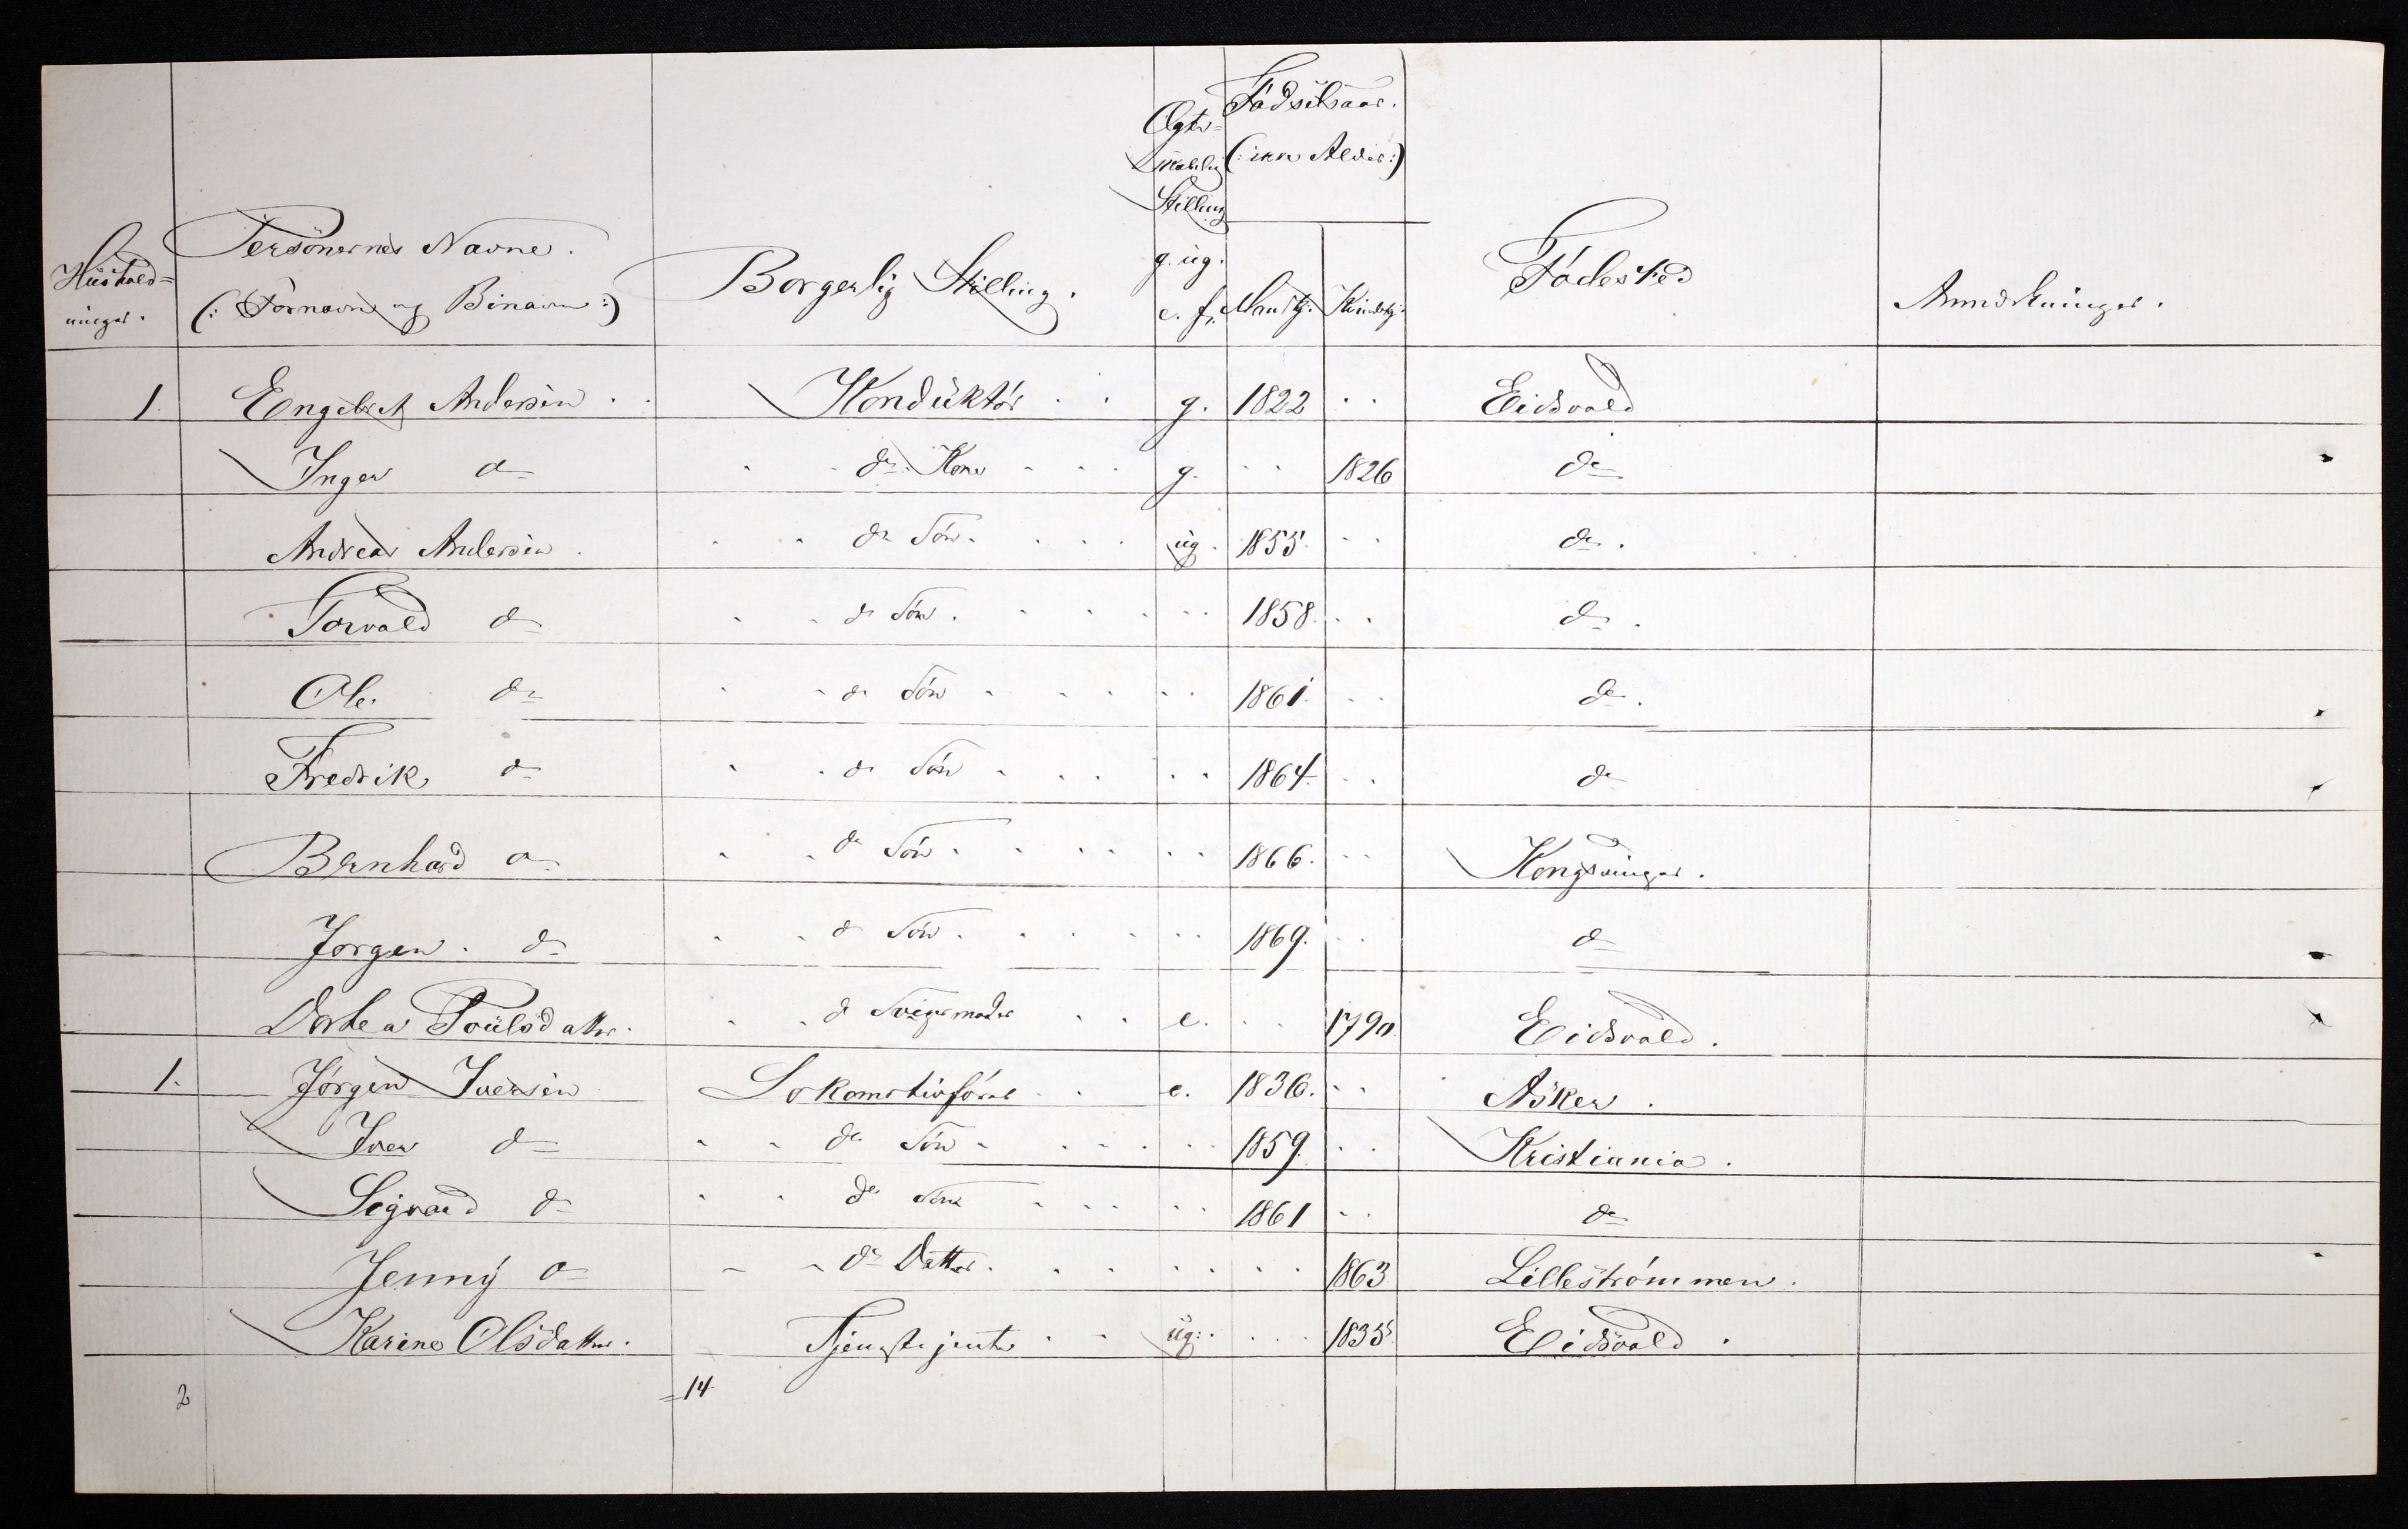 Fødselsaar.
Ægte=
skabelig (: ikke Alder :)
Stilling
Personernes Navne.
Hüshold= Borgerlig Stilling. g. üg. Fødested
ninger. (: Fornavn og Binavn :) e. f. Mandkj. Kvindekj. Anmærkninger.
1. Engebret Andersen . . Kondüktør . . g. 1822 . . Eidsvold
Inger do . . do Kone . . . g. . . 1826 do
Andreas Andersen . . . do Søn . . . . üg. 1855. . . do .
Torvald do . . do Søn . . . . . . 1858. . . do .
Ole. do . . do Søn . . . . . . 1861. . . do .
Fredrik do . . do Søn . . . . . 1864. . . do
Bernhard do . . do Søn . . . . . . 1866. . . Kongsvinger.
Jorgen . do . . do Søn . . . . . . 1869. . . do
Dortea Poülsdatter. . . do Svigermoder . . e. . . 1790. Eidsvold.
1. Jørgen Iversen Lokomotivfører . . e. 1836. . . Asker .
Iver do . . do Søn . . . . . . 1859. . . Kristiania .
Sigvard do . . do Søn . . . . . 1861 . . do
Jenny do . . do Datter. . . . . . . . 1863 Lillestrømmen .
Karine Olsdatter. Tjenestejente . . üg: . . . . 1835 Eidsvold .
2 =14